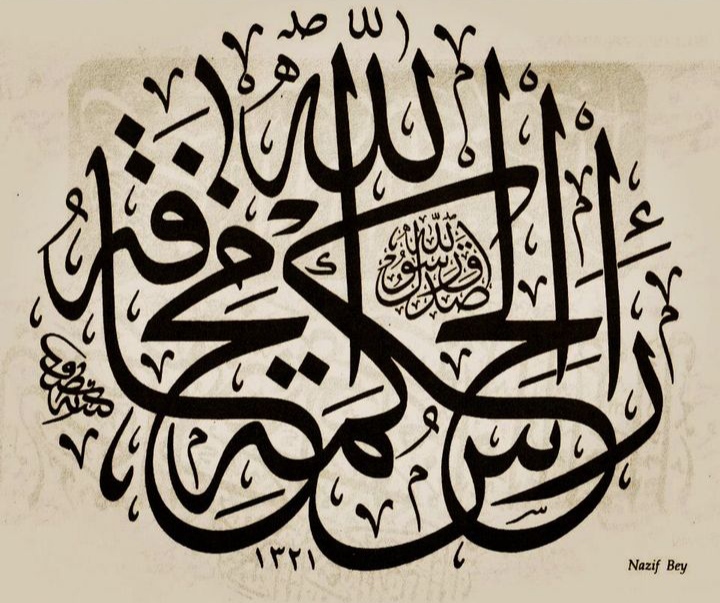 رأس الحكمة مخافة الله
صدق رسول الله
١٣٢١
Nazif Bey